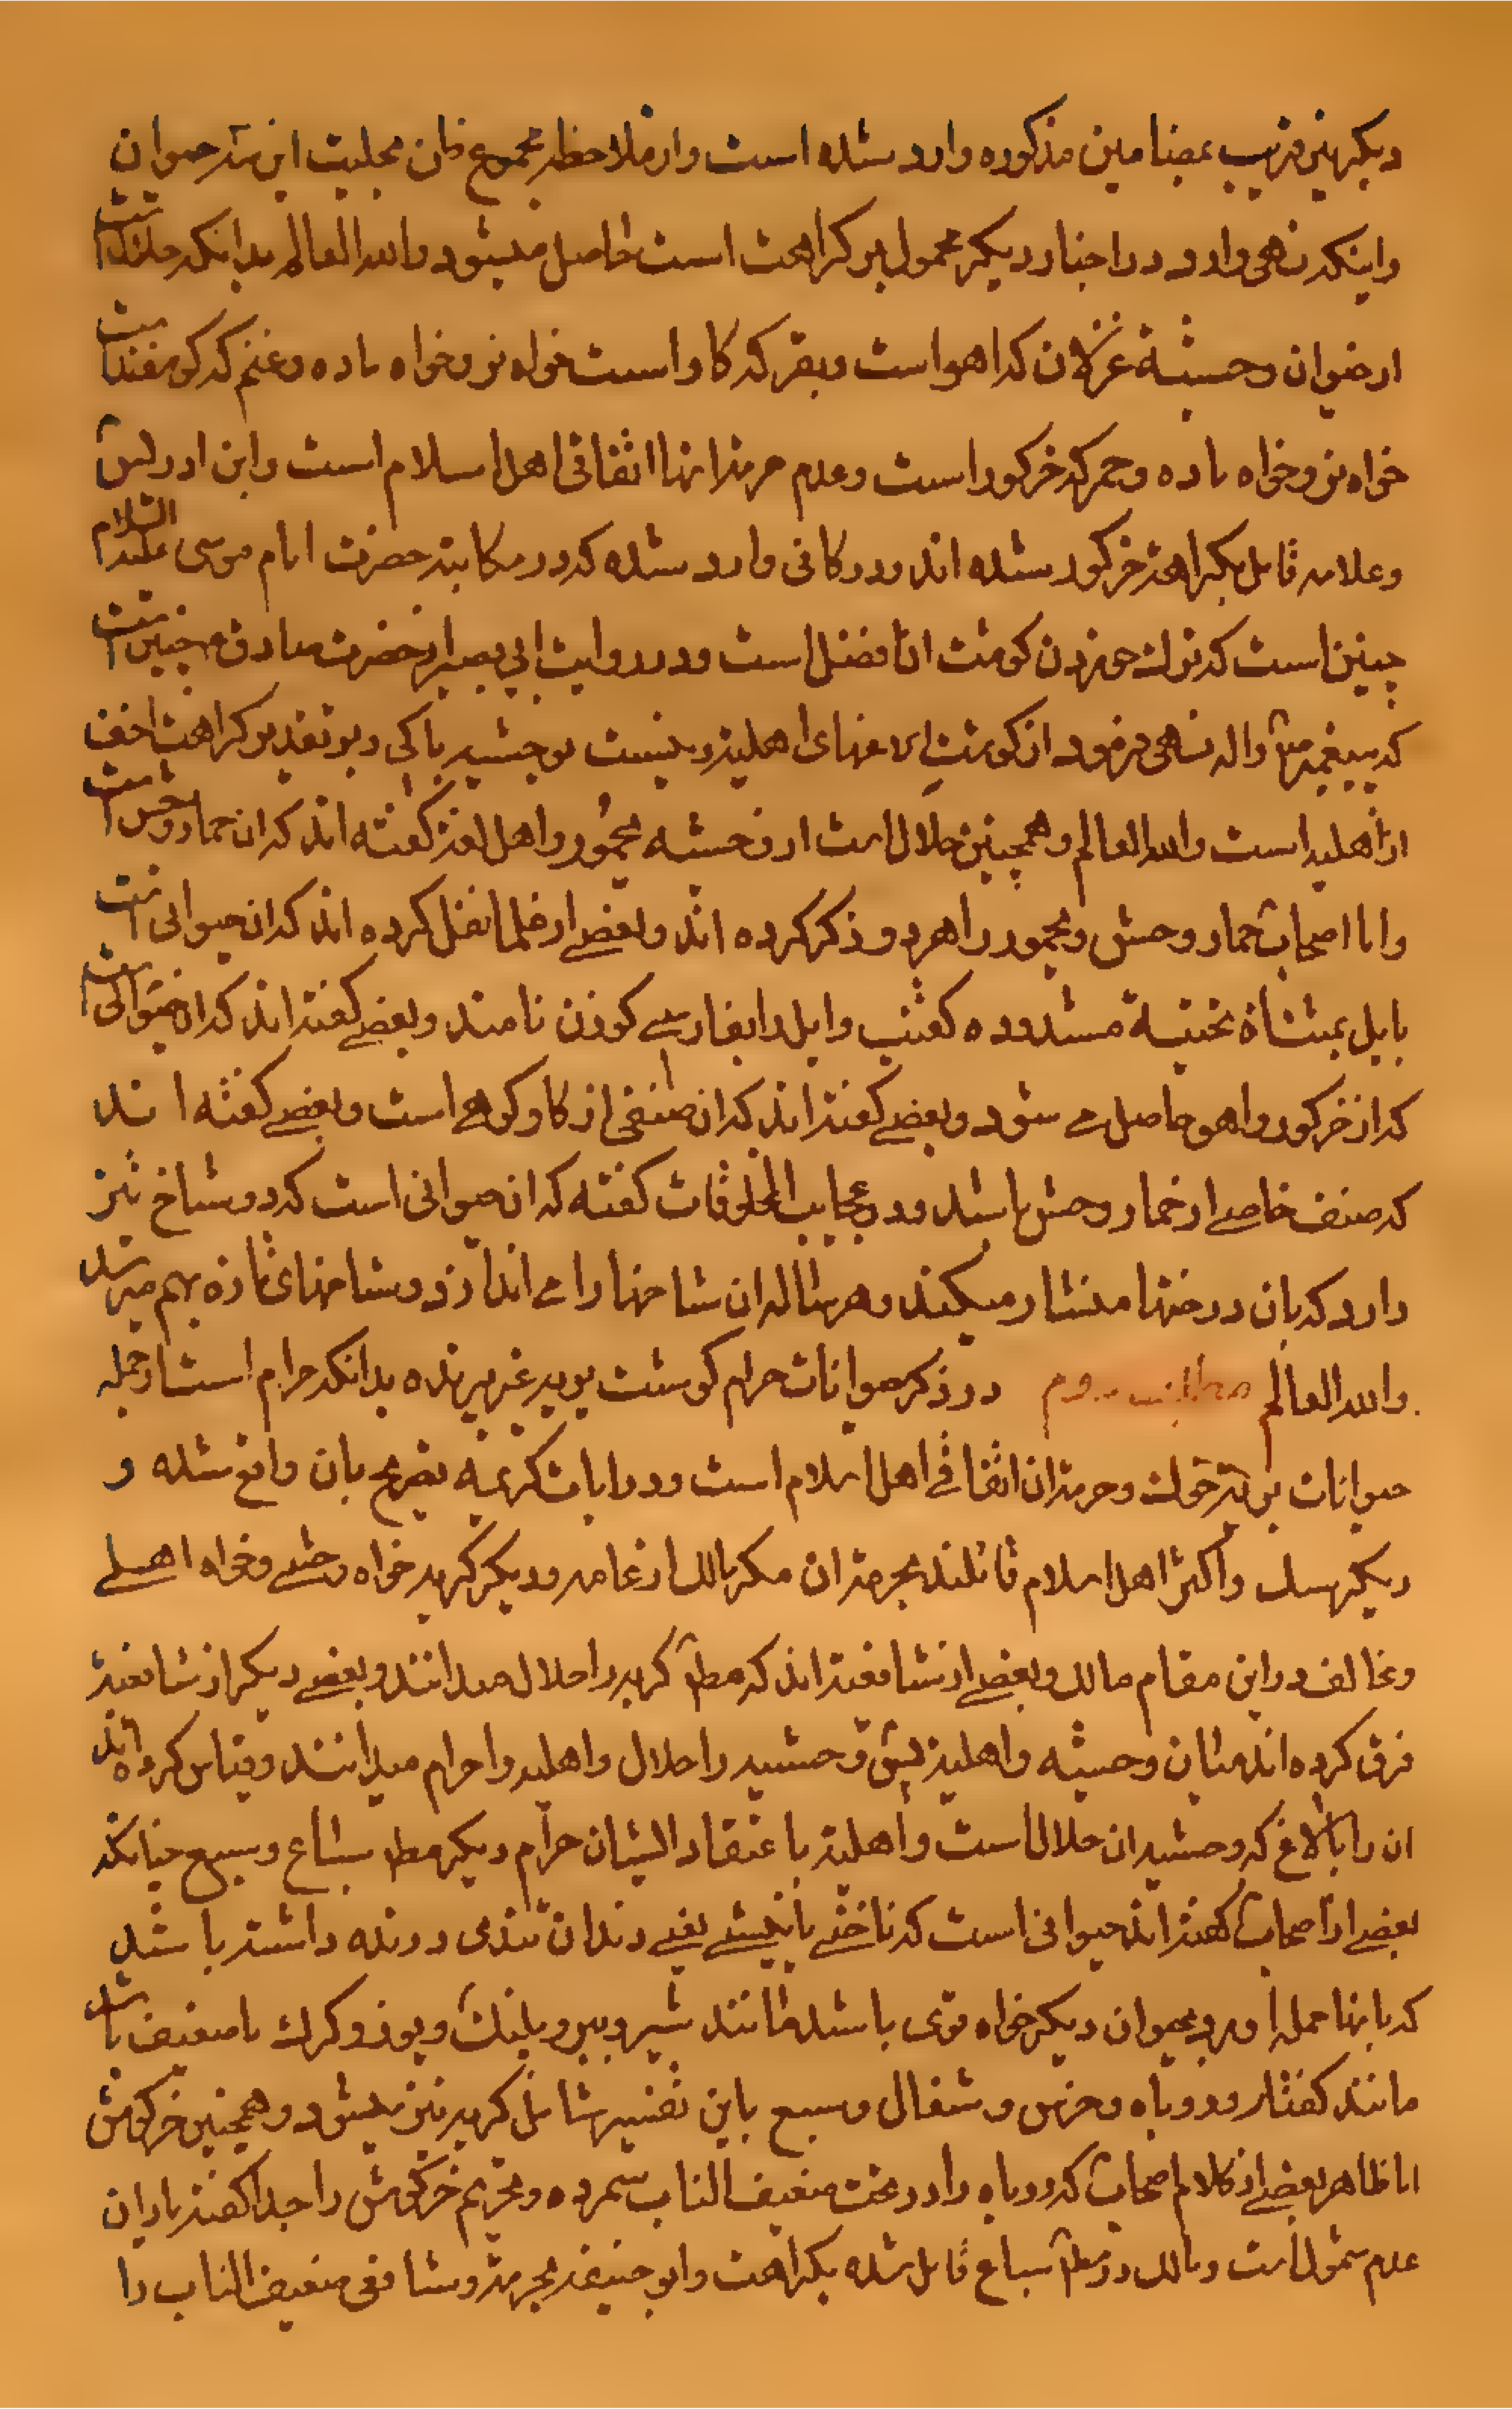 دیکر نیز قریب بمضامین مذکوره وارد شده است و از ملاحظه مجموع ظن بحلیت این سه حیوان
و اینکه نهی وارد در اخبار دیکر محمول بر کراهت است حاصل میشود و الله العالم بدانکه حلال است
از حیوان وحشیة غزلان که اهو است و بقر که کاو است خواه نر و خواه ماده و غنم که کوسفند است
خواه نر و خواه ماده و حمر که خر کور است و عدم حرمة اینها اتفاقی اهل اسلام است و ابن ادریس
و علامه قایل بکراهة خر کور شده اند و در کافی وارد شده که در مکاتبه حضرت امام موسی علیه السلام
چنین است که ترک خوردن کوشت ان افضل است و در روایت ابی بصیر از حضرت صادق ع چنین است
که پیغمبر ص و اله نهی فرمود از کوشت الاغهای اهلیة و نیست بوحشیه باکی و بر تقدیر کراهت اخف
از اهلیه است و الله العالم و همچنین حلال است از وحشیه یحمور و اهل لغة کفته اند که ان حمار وحش است
و اما اصحاب حمار وحش و یحمور را هر دو ذکر کرده اند و بعضے از علما نقل کرده اند که ان حیوانی است
بایل بمثناة تحتیة مشدوده کفتب و ایل را بفارسے کوزن نامند و بعضے کفته اند که ان حیوانی است
که از خر کور و اهو حاصل مے شود و بعضے کفته اند که ان صنفی از کاو کوهے است و بعضے کفته اند
که صنف خاصے از حمار وحش باشد و در عجایب المخلوقات کفته که ان حیوانی است که دو شاخ تیز
دارد که بان درختها منشار میکند و هر ساله ان شاخها را مے اندازد و شاخهای تازه بهم میرسد
و الله العالم مطلب دوم در ذکر حیوانات حرام کوشت بریه غیر پرنده بدانکه حرام است از جمله
حیوانات بریة خوک و حرمة ان اتفاقے اهل اسلام است و در ایات کریمه تصریح بان واقع شده و
دیکر سک و اکثر اهل اسلام قائلند بحرمة ان مکر مالک از عامه و دیکر کربه خواه وحشے و خواه اهلے
و مخالف در این مقام مالک و بعضے از شافعیة اند که مطلقا کربه را حلال میدانند و بعضے دیکر از شافعیة
فرق کرده اند میان وحشیه و اهلیة پس وحشیه را حلال و اهلیه را حرام میدانند و قیاس کرده اند
ان را بالاغ که وحشیه ان حلال است و اهلیة باعتقاد ایشان حرام دیکر مطلق سباع و سبع چنانکه
بعضے از اصحاب کفته اند حیوانی است که ناخنے یا نیشے یعنے دندان تندی درنده داشته باشد
که بانها حمله اورد بحیوان دیکر خواه قوی باشد مانند شیر و ببر و پلنک و یوز و کرک یا ضعیف باشد
مانند کفتار و روباه و خرس و شغال و سبع باین تفسیر شامل کربه نیز میشود و همچنین خرکوش
اما ظاهر بعضے از کلام اصحاب که روباه را در تحت ضعیف الناب شمرده و تحریم خرکوش را جدا کفته یا دران
عدم شمول است و مالک در مطلق سباع قایل شده بکراهت و ابو حنیفه بحرمة و شافعی ضعیف الناب را